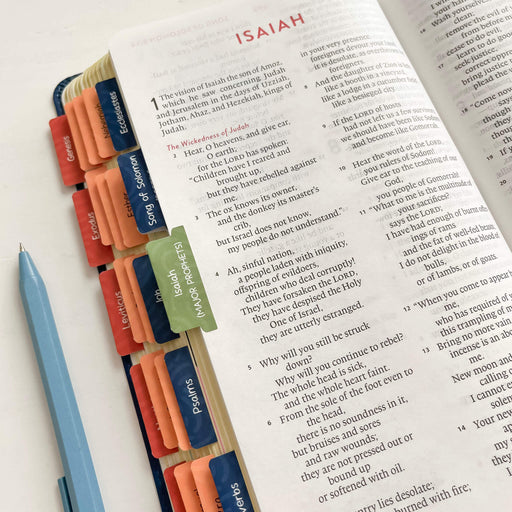 ISAIAH
1 The vision of Isaiah the son of Amoz,
which he saw concerning Judah
and Jerusalem in the days of Uzziah,
Jotham, Ahaz, and Hezekiah, kings of
Judah.
The Wickedness of Judah
2 Hear, O heavens, and give ear,
O earth;
for the LORD has spoken:
"Children have I reared and
brought up,
but they have rebelled against
me.
3 The ox knows its owner,
and the donkey its master's
crib,
but Israel does not know,
my people do not understand."
4 Ah, sinful nation,
a people laden with iniquity,
offspring of evildoers,
children who deal corruptly!
They have forsaken the LORD,
they have despised the Holy
One of Israel,
they are utterly estranged.
5 Why will you still be struck
down?
Why will you continue to rebel?
The whole head is sick,
and the whole heart faint.
6 From the sole of the foot even to
the head,
there is no soundness in it,
but bruises and sores
and raw wounds;
they are not pressed out or
bound up
or softened with oil.
in your very presence
foreigners devour your land;
it is desolate, as overthrown by
foreigners.
8 And the daughter of Zion is left
like a booth in a vineyard,
like a lodge in a cucumber field,
like a besieged city.
9 If the LORD of hosts
had not left us a few survivors,
we should have been like Sodom,
and become like Gomorrah.
10 Hear the word of the LORD,
you rulers of Sodom!
Give ear to the teaching of our
God,
you people of Gomorrah!
11 "What to me is the multitude of
your sacrifices?
says the LORD;
I have had enough of burnt
ings of rams
and the fat of well-fed beasts;
I do not delight in the blood
bulls,
or of lambs, or of goats.
12 "When you come to appear
me,
who has required of
this trampling of my
13 Bring no more vain
incense is an
me.
New moon and
calling of
I cannot
solemn
14 Your new
my
country lies desolate;
burned with fire;
16 Wash
clean;
remove the evil of
from before my
cease to do evil,
17 learn to do good;
seek justice,
correct
bring justice
plead the
18 "Come now,
Genesis
Exodus
Leviticus
Esther
Job
Psalms
Ecclesiastes
Song of Solomon
Isaiah
(MAJOR PROPHETS)